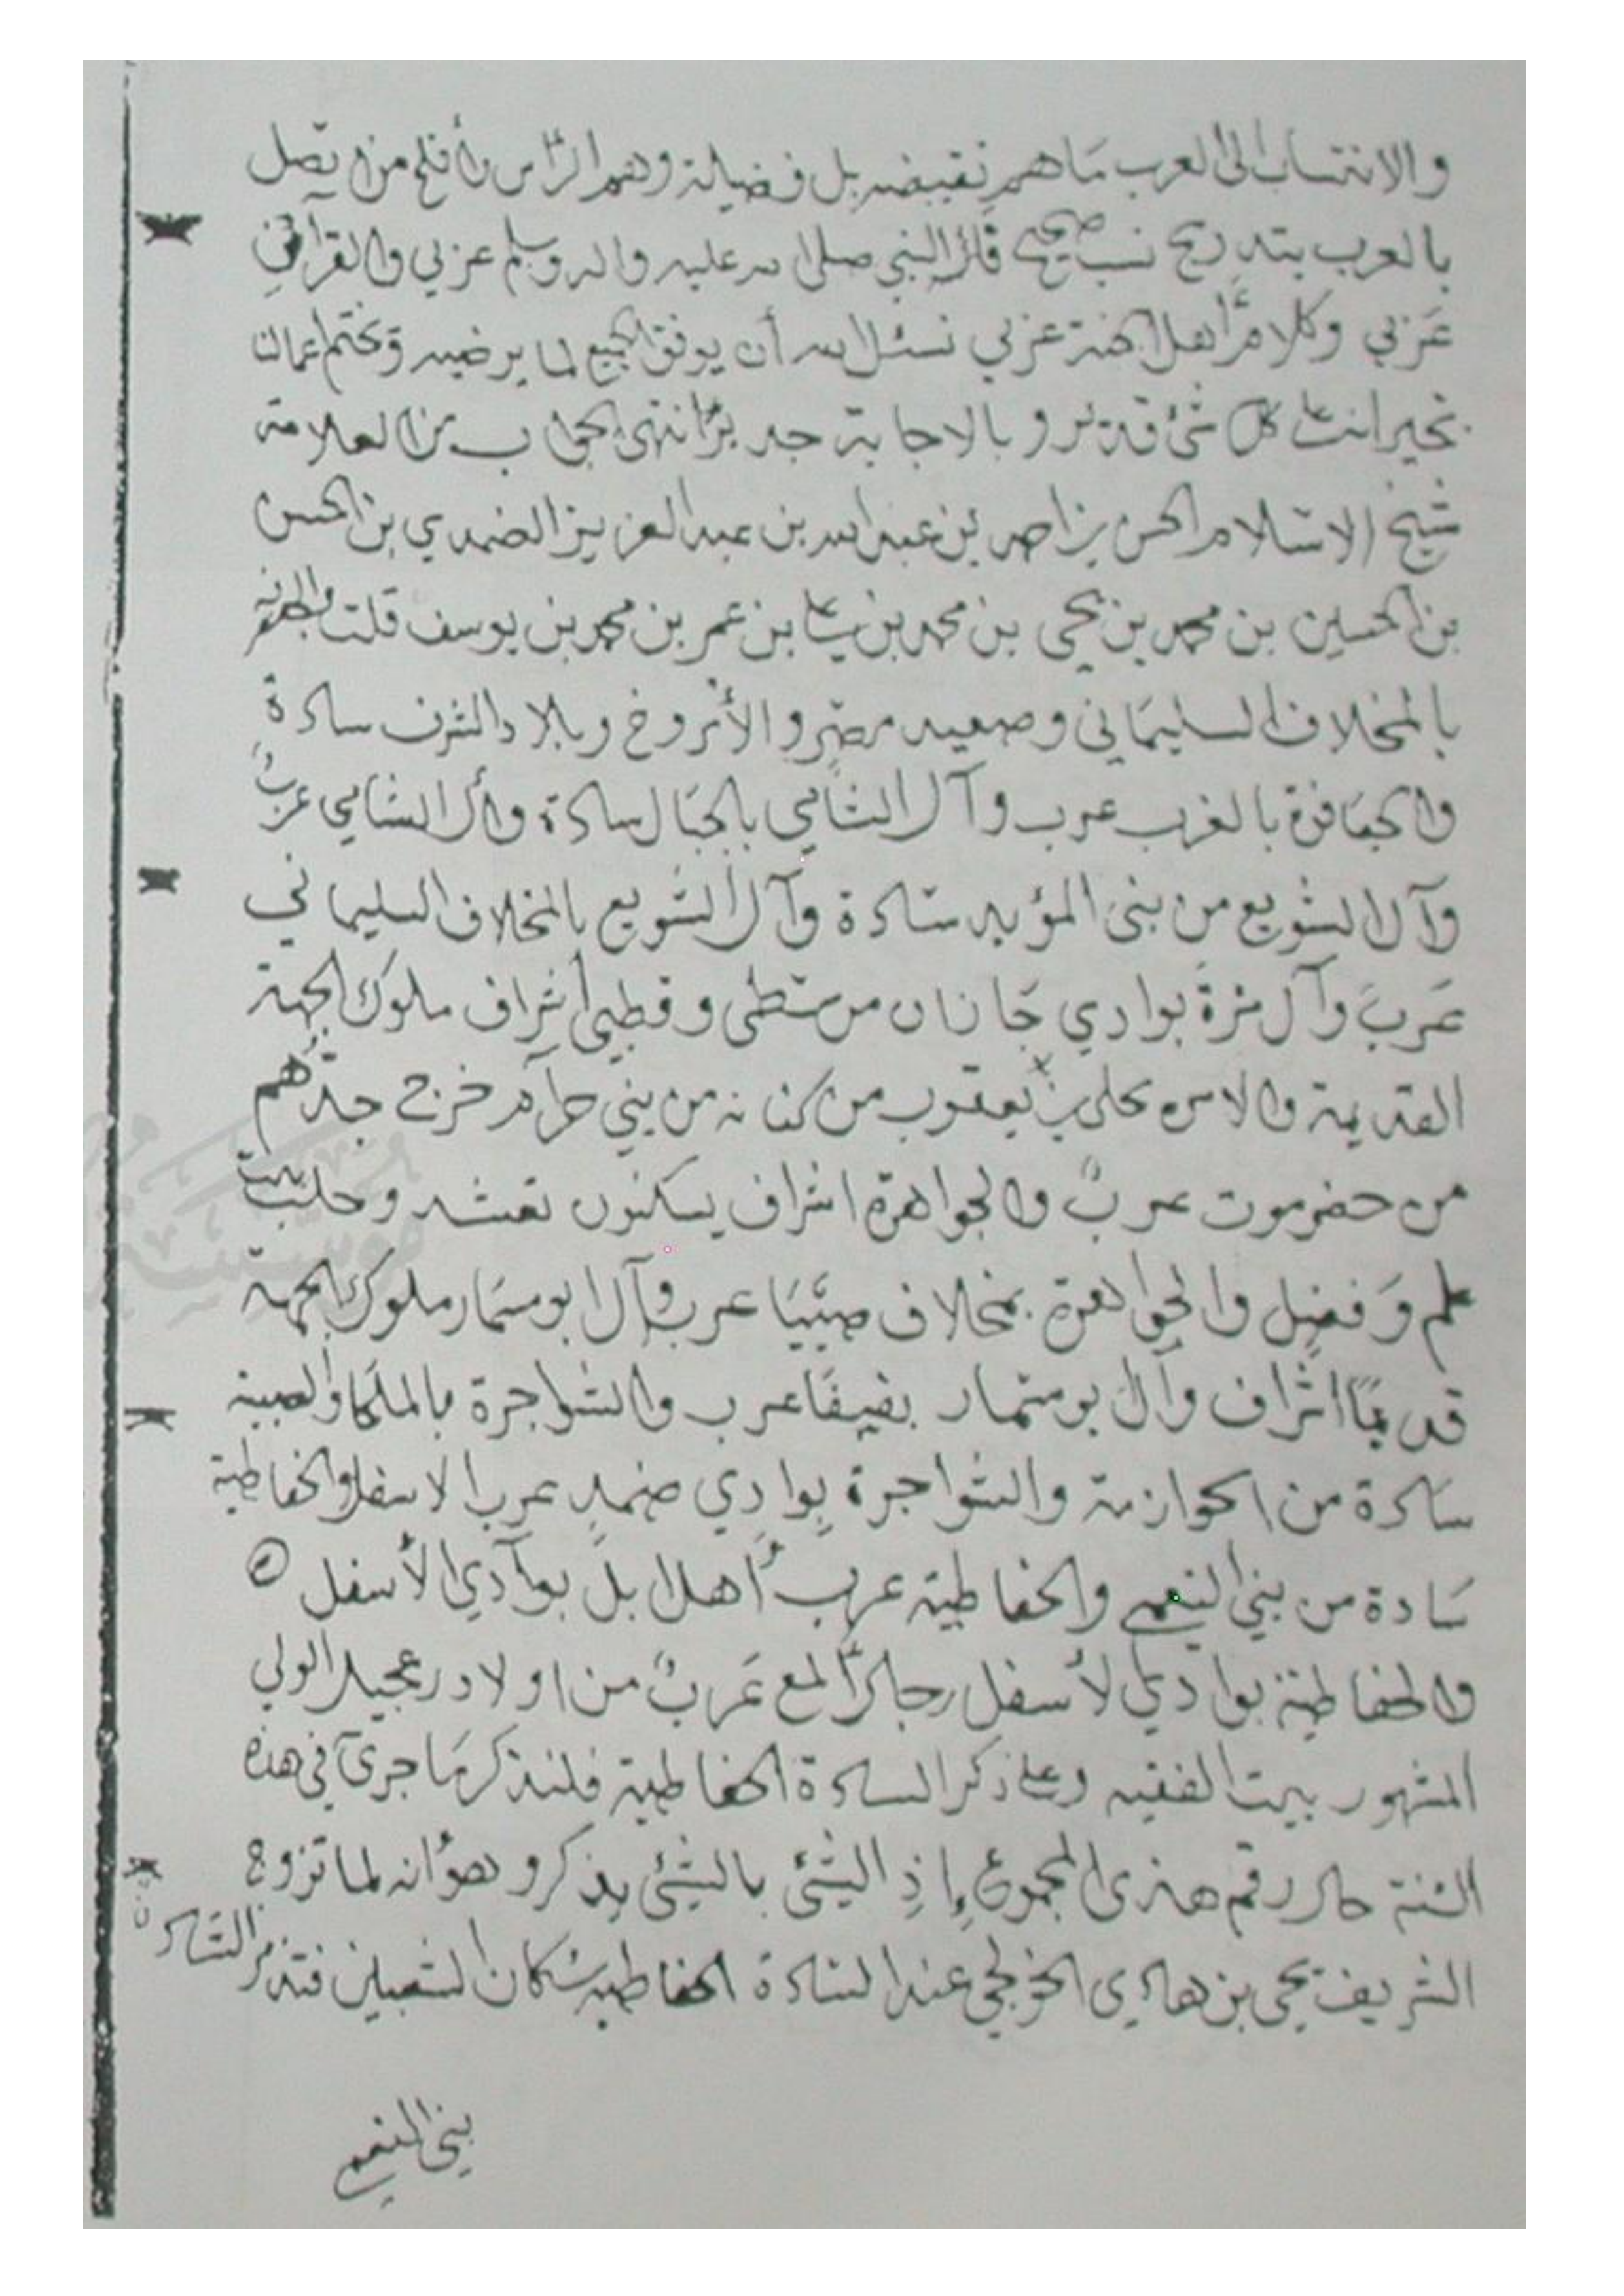 والانتساب الى العرب ما هم نقيضه بل فضيلة وهم الرأس وأفلح من يصل
بالعرب بتدريج نسب صحيح قال النبي صلى الله عليه واله وسلم عربي والقرآن
عربي وكلام أهل الجنة عربي نسئل الله أن يوفق الجميع لما يرضيه ويختم اعمالنا
بخير انت على كل شئ قدير وبالاجابة جدير انتهى الجواب من العلامة
شيخ الاسلام الحسن بن احمد بن عبد الله بن عبد العزيز الضمدي بن الحسن
بن الحسين بن محمد بن يحي بن محمد بن علي بن عمر بن محمد بن يوسف قلت
بالمخلاف السليماني وصعيد مصر و وبلاد الشرف سادة
والجعافرة بالغرب عرب وآل الشامي بالجبال سادة وآل الشامي عربٌ
وآل الشويع من بني المؤيد سادة وآل الشويع بالمخلاف السليماني
عرب وآل بوادي جازان من وقطبي أشراف ملوك الجهة
القديمة يعقوب من كنانه من بني حرام خرج جدهم
من حضرموت عربٌ والجواهرة اشراف يسكنون وحلب بيت
علم وفضل والجواهرة بمخلاف صبيا عرب وآل ابو سمار ملوك الجهة
قديمًا اشراف وآل بو سمار عرب والشواجرة
سادة من الحوازمة والشواجرة بوادي ضمد عرب الاسفل والحفاظية
سادة من بني النعمي والحفاظية عرب أهل ابل بوادي الأسفل
والحفاظية بوادي الأسفل رجال ألمع عربٌ من اولاد عجيل الولي
المشهور ببيت الفقيه وعلى ذكر السادة الحفاظية فلنذكر ما جرى في هذه
السنة حال رقم هذى المجموع إذِ الشئ بالشئ يذكر وهو انه لما تزوج
الشريف يحي بن هادي عند السادة الحفاظية سكان الشعبين السادة
بني النعمي